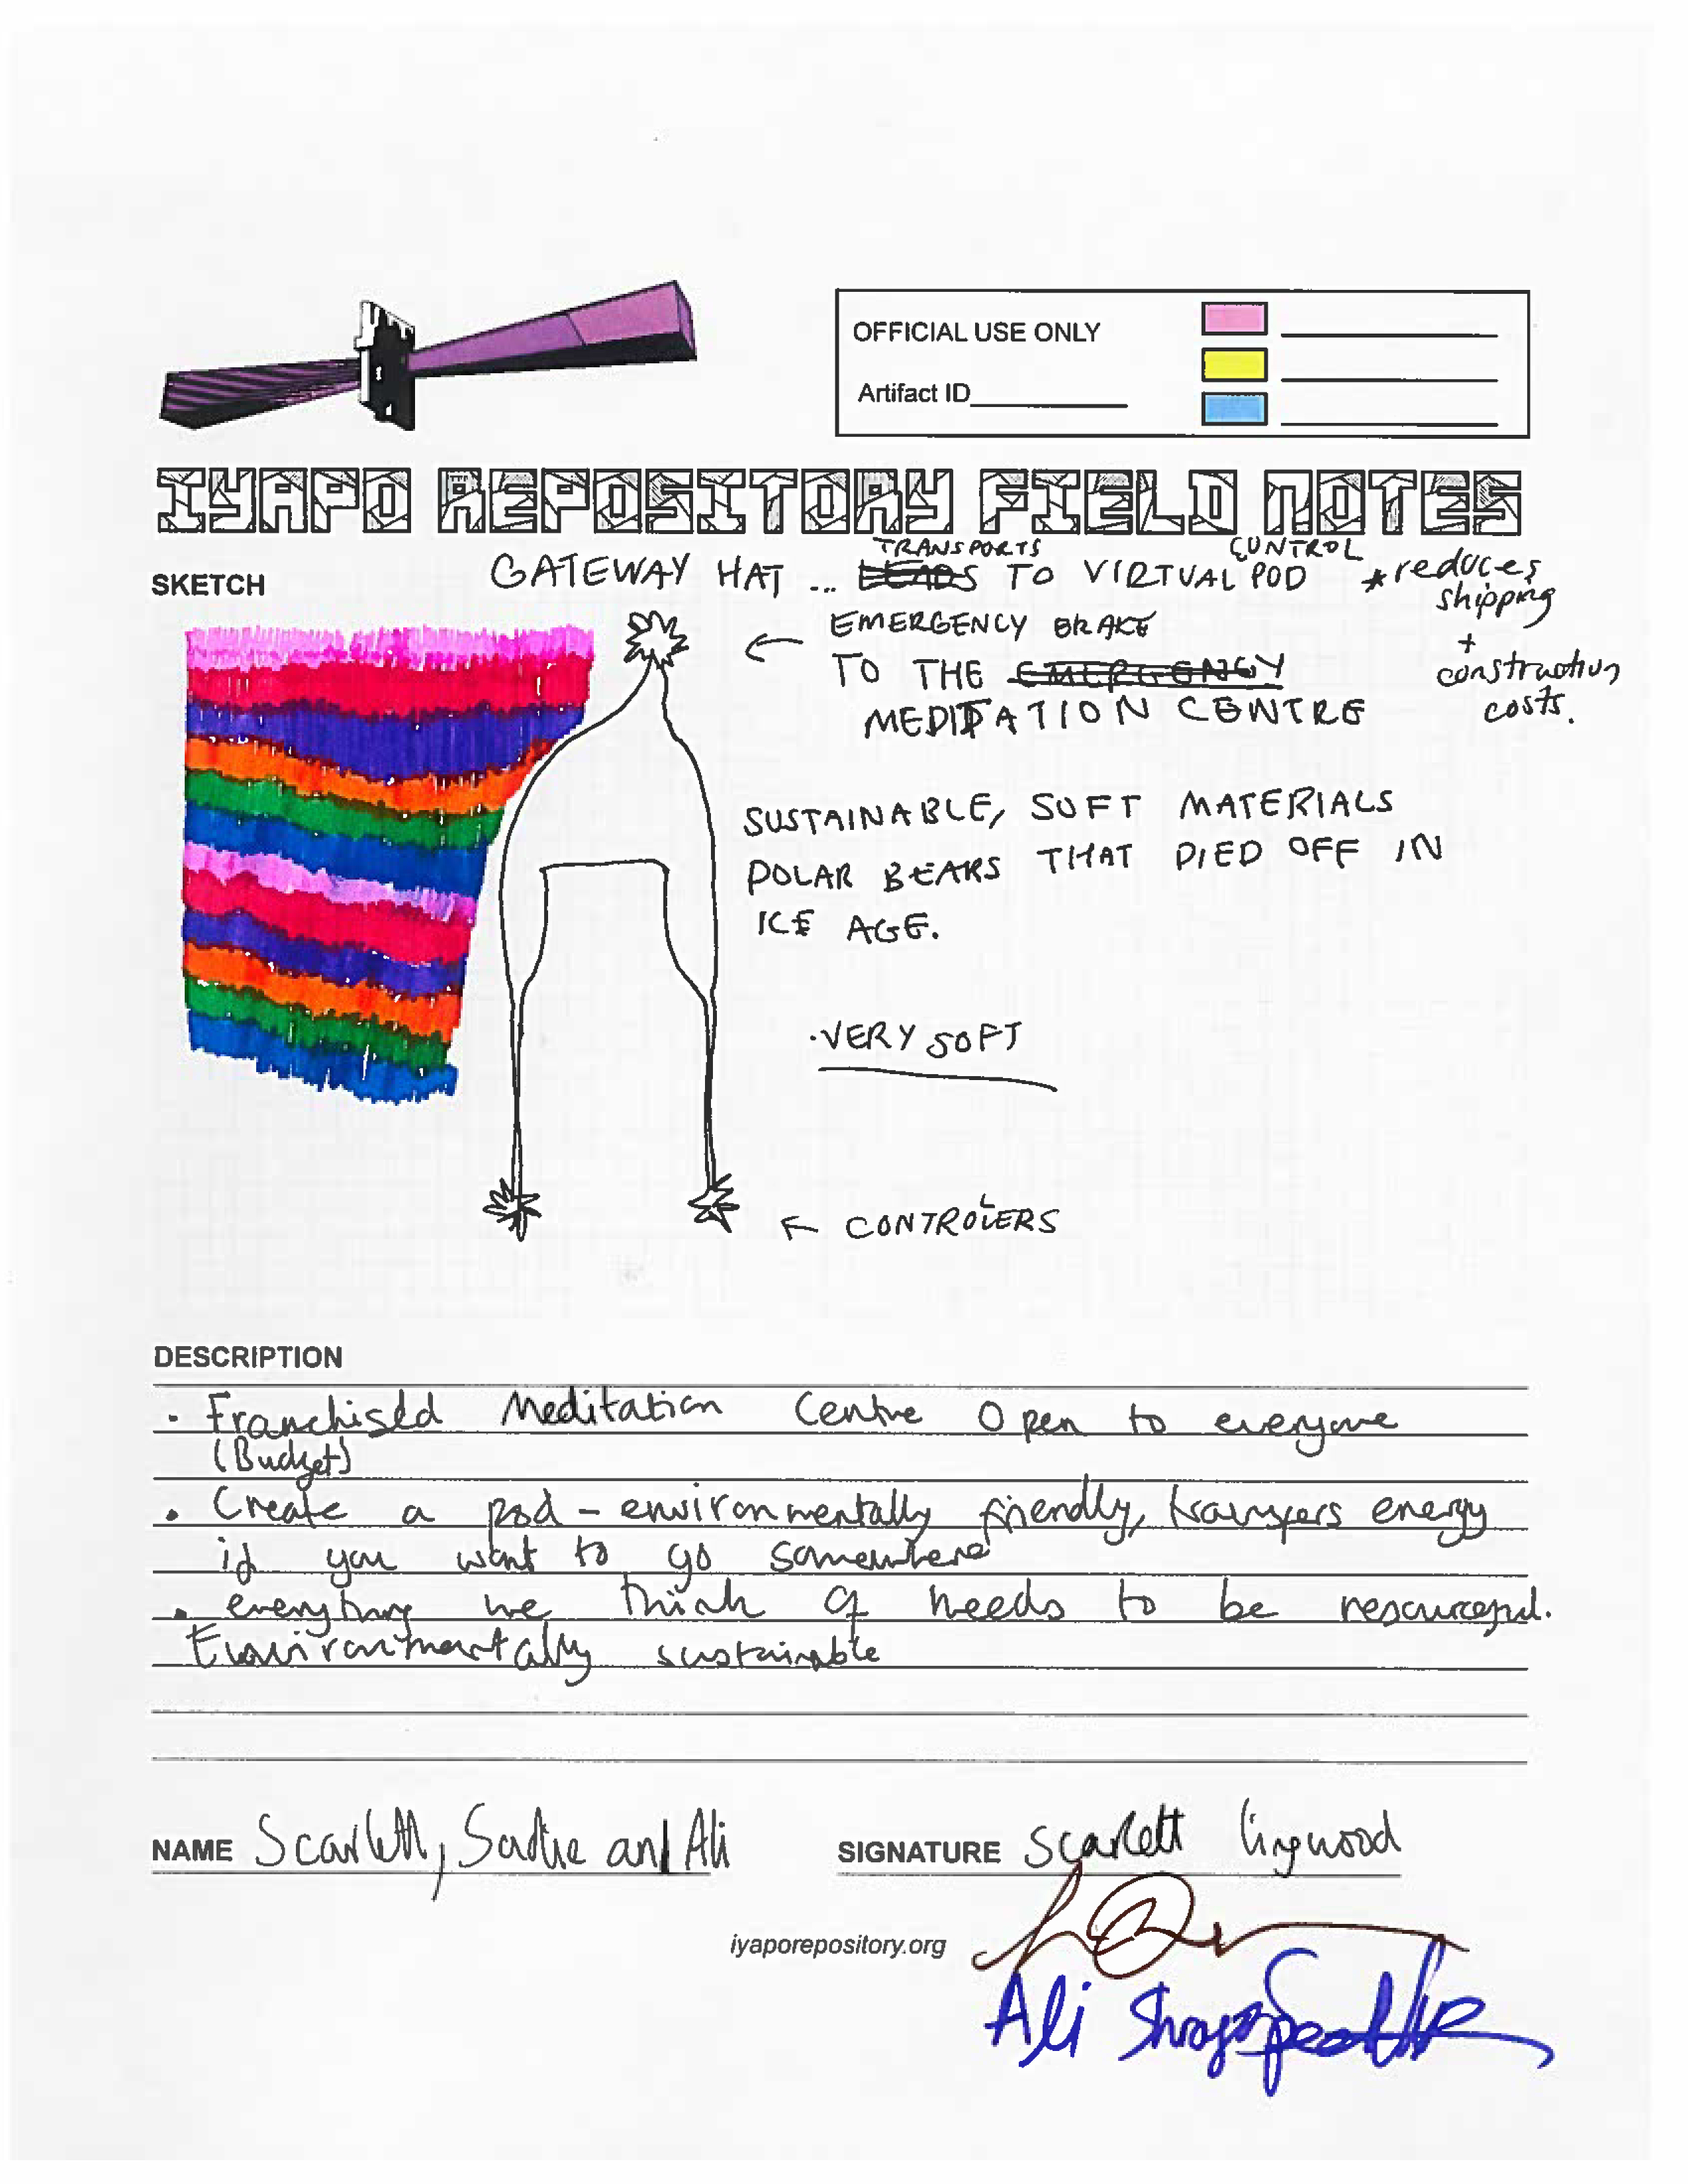 OFFICIAL USE ONLY
Artifact ID
IYAPO REPOSITORY FIELD NOTES
SKETCH
TRANSPORTS
CONTROL
GATEWAY HAT ... LEADS TO VIRTUAL POD
*reduces
shipping
+
construction
costs.
← EMERGENCY BRAKE
TO THE EMERGENCY
MEDITATION CENTRE
SUSTAINABLE, SOFT MATERIALS
POLAR BEARS THAT DIED OFF IN
ICE AGE.
·VERY SOFT
← CONTROLLERS
DESCRIPTION
· Franchised Meditation Centre Open to everyone
(Budget)
· Create a pod - environmentally friendly, transfers energy
if you want to go somewhere
· everything we think of needs to be resourceful.
Environmentally sustainable
NAME Scarlett, Sadie and Ali
SIGNATURE Scarlett lingwood
iyaporepository.org
Ali